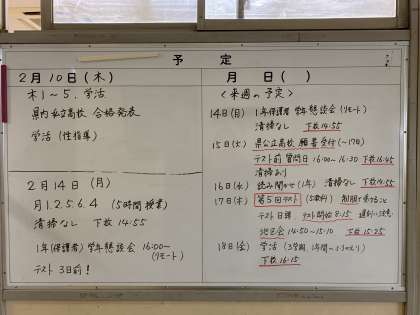 予定
2月10日(木)
木1～5.学活
県内私立高校 合格発表
学活(性指導)
2月14日(月)
月1.2.5.6.4 (5時間授業)
清掃なし 下校14:55
1年(保護者)学年懇談会 16:00～
(リモート)
テスト3日前!
月 日( )
<来週の予定>
14日(月) 1年保護者 学年懇談会(リモート)
清掃なし 下校14:55
15日(火) 県公立高校 願書受付(～17日)
テスト前 質問日 16:00～16:30 下校16:45
清掃あり
16日(水) 読み聞かせ(1年) 清掃なし 下校14:55
17日(木) 第5回テスト(5教科) 制服で来ること
テスト日課 テスト開始8:15 遅刻に注意
地区会 14:50～15:10 下校15:25
18日(金) 学活
下校16:15